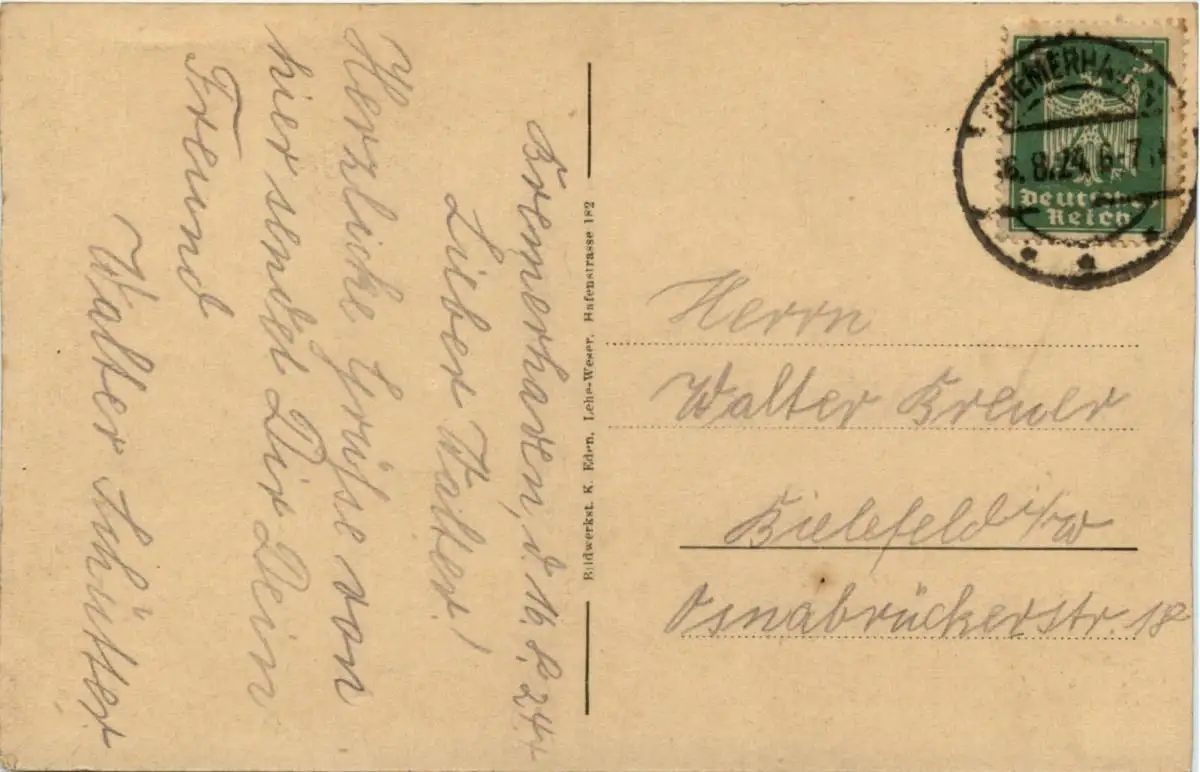 Bremerhaven, d. 16.8.24.
Lieber Walter!
Herzliche Grüße von
hier sendet Dir Dein
Freund
Walter Schütter
Bildwerkst. K. Eden, Lehe-Weser, Hafenstrasse 182
5
Deutsches
Reich
BREMERHAVEN
6.8.24.6-7
Herrn
Walter Kreuer
Bielefeld i/W
Osnabrückerstr. 18